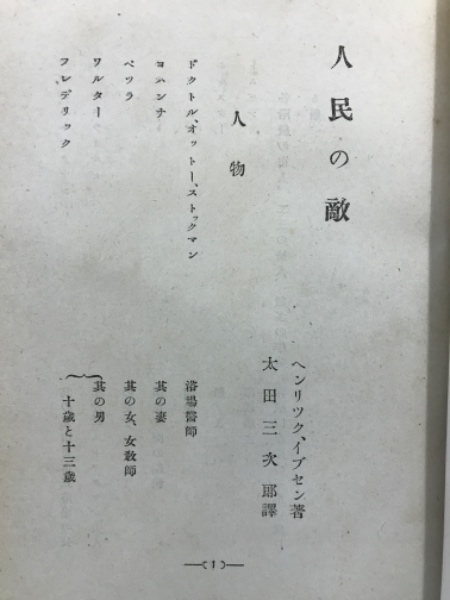 人民の敵
ヘンリツク、イブセン著
太田三次郎譯
人物
ドクトル、オットー、ストックマン 浴場醫師
ヨハンナ 其の妻
ペツラ 其の女、女敎師
ワルター 其の男
フレデリック 十歳と十三歳
(1)